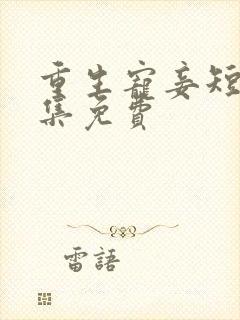 重生寵妾短
集免費
雷語